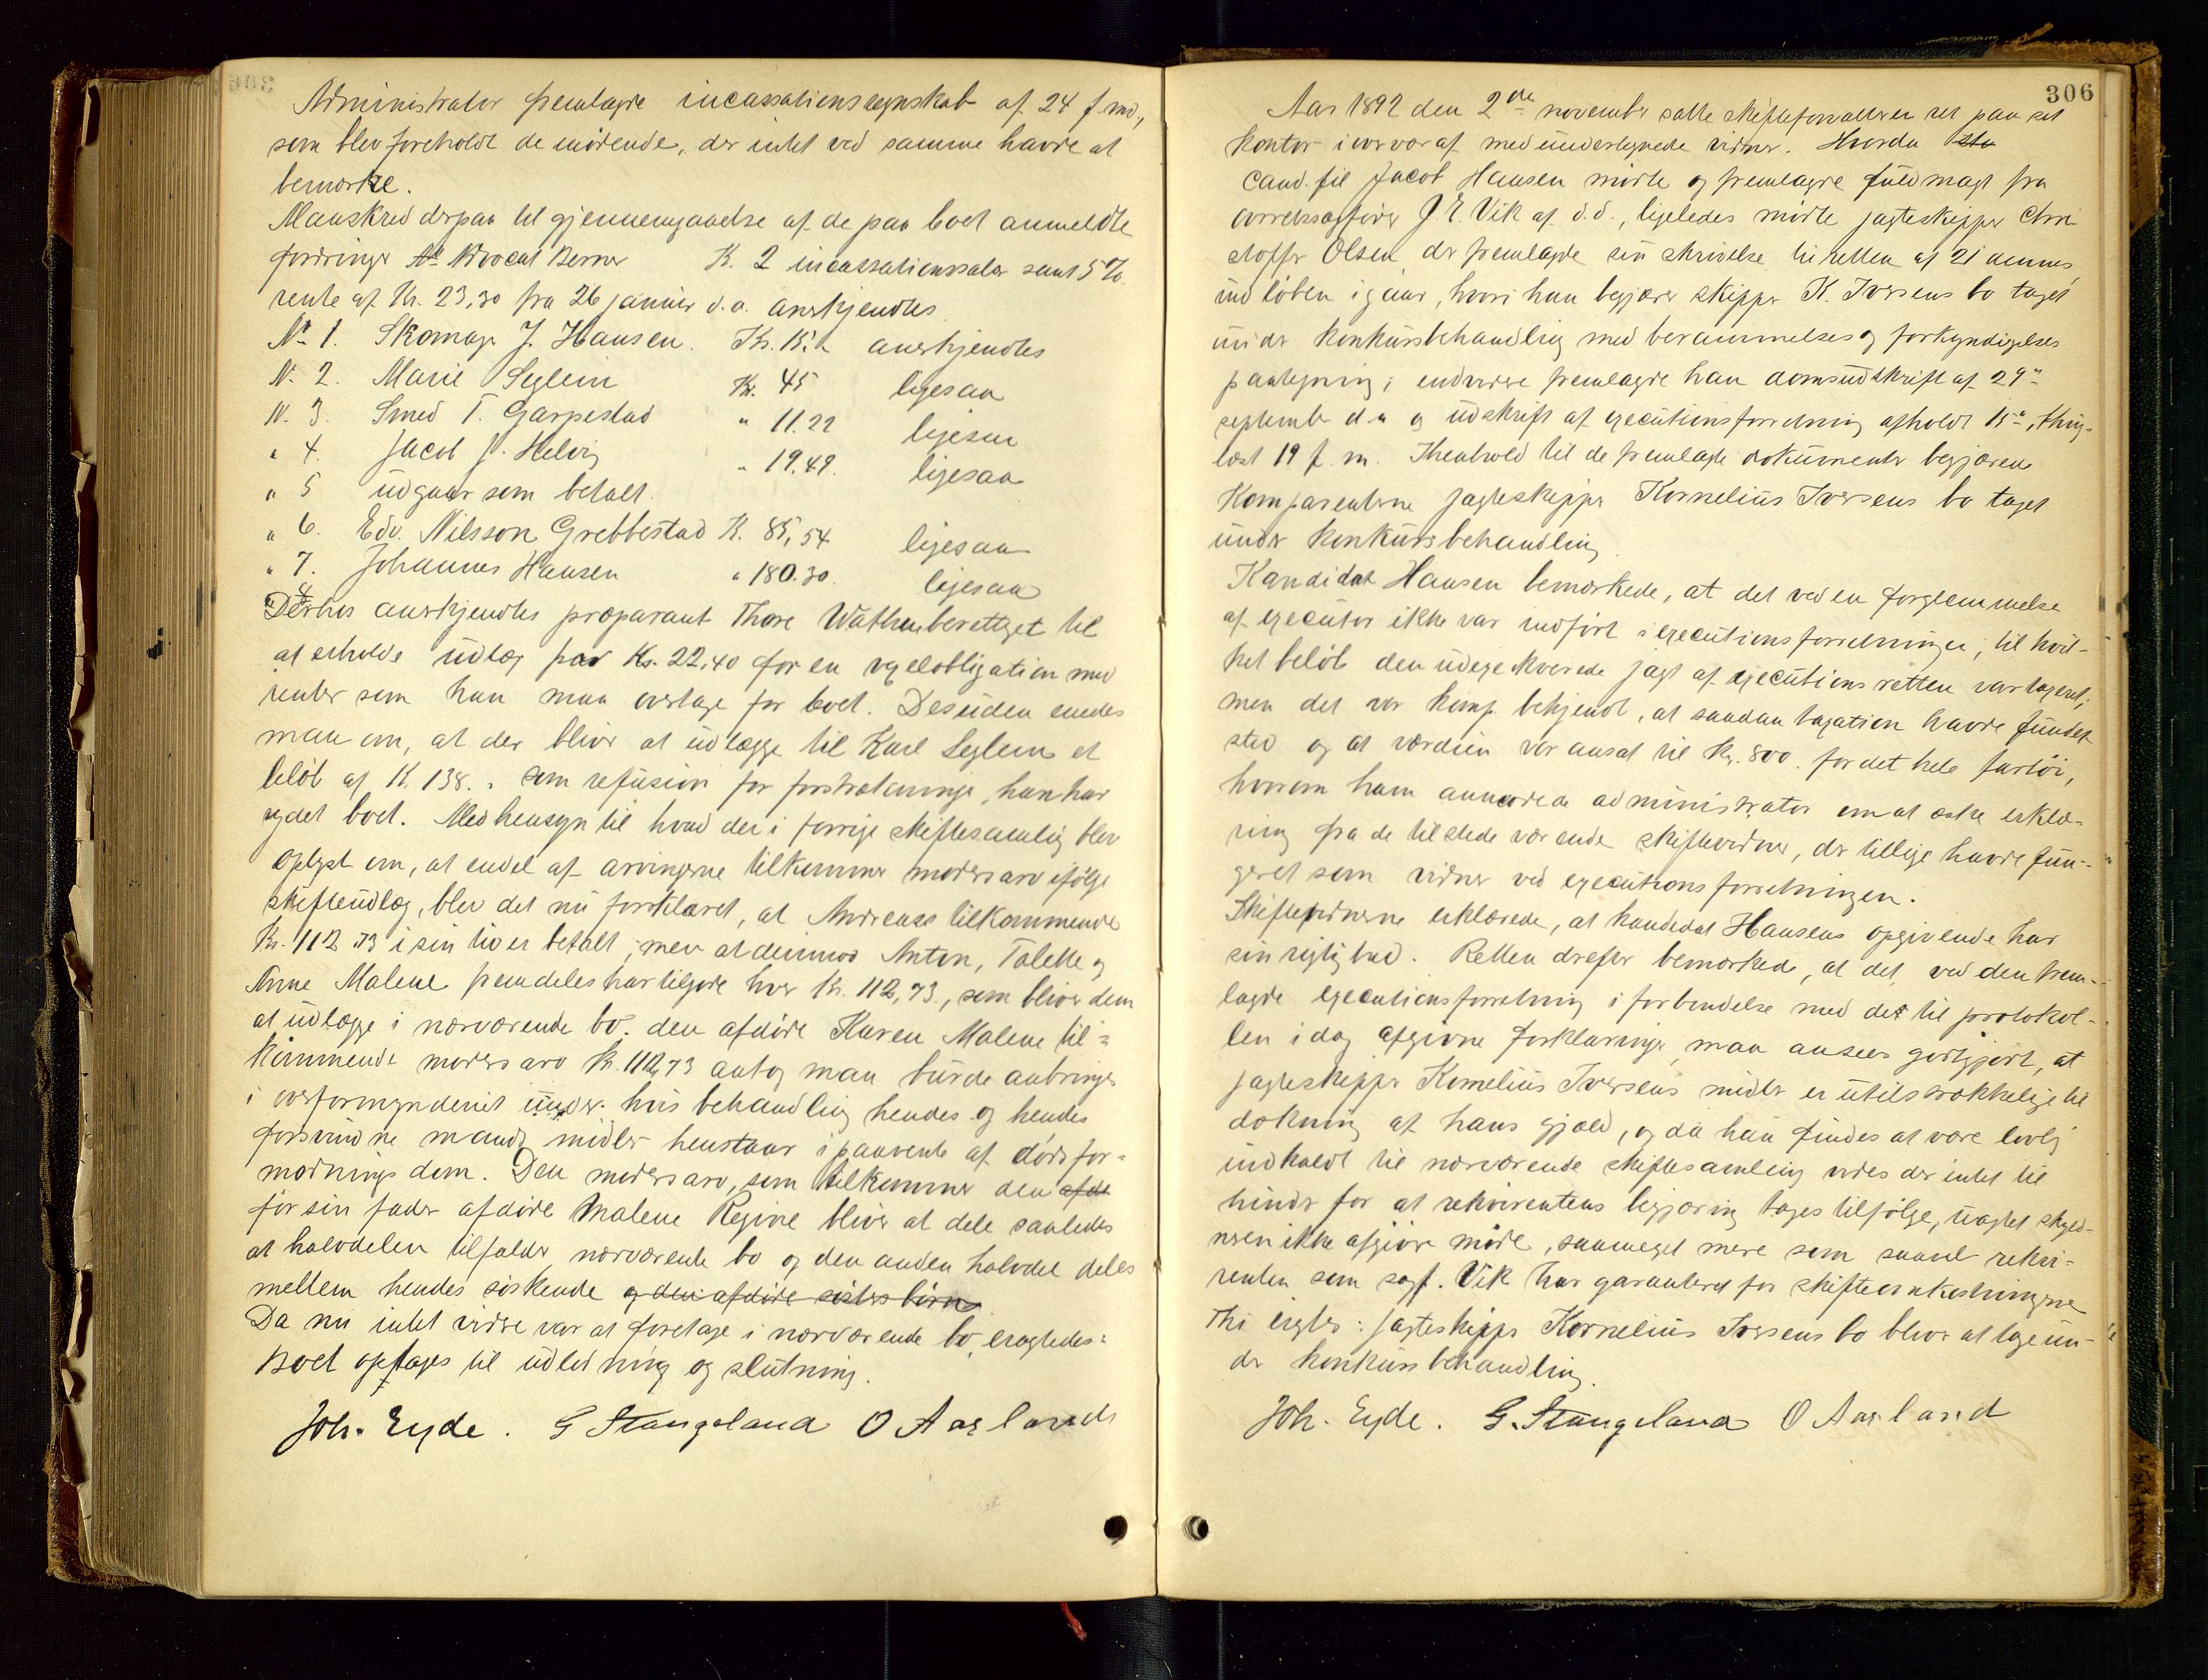 Administrator fremlagde incassationsregnskab af 24 f. md.,
som blev foreholdt de mødende, der intet ved samme havde at
bemærke.
Man skred derpaa til gjennemgaaelse af de paa boet anmeldte
fordringer No Advocat Berner K. 2 incassationssalær samt 5 %
rente af Kr. 23,30 fra 26 januar d.a. anerkjendtes
No 1. Skomager J. Hansen. Kr. 15. anerkjendtes
N. 2. Marie Seglem Kr. 45 ligesaa
N. 3. Smed T. Garpestad " 11.22 ligesaa
" 4. Jacob J. Helvig " 19.49. ligesaa
" 5 udgaar som betalt.
" 6. Edv. Nilsson Grebbestad K. 85,54 ligesaa
" 7. Johannes Hansen " 180.30. ligesaa
Derhos anerkjendtes præparant Thore Wathne berettiget til
at erholde udlæg for Kr. 22,40 for en obligation med
renter som han maa overtage for boet. Desuden enedes
man om, at der bliver at udlægge til Karl Seglem et
beløb af K. 138. " som refusion for forstrækninger, han har
ydet boet. Med hensyn til hvad der i forrige skiftesamling blev
oplyst om, at endel af arvingerne tilkommer mødrearv ifølge
skifteudlæg, blev det nu forklaret, at Andreas's tilkommende
Kr. 112 73 i sin tid er betalt, men at derimod Anton, Tolette og
Anne Malene fremdeles har tilgode hver Kr. 112,73, som bliver dem
at udlægge i nærværende bo. den afdøde Karen Malene til-
kommende mødrearv Kr. 112,73 antog man burde anbringes
i overformynderiet under hvis behandling hendes og hendes
forsvundne mands midler henstaar i paavente af dødsfor-
modnings dom. Den mødrearv, som tilkommer den afdø
før sin fader afdøde Malene Regine bliver at dele saaledes
at halvdelen tilfalder nærværende bo og den anden halvdel deles
mellem hendes søskende og den afdøde søsters børn
Da nu intet videre var at foretage i nærværende bo, eragtedes:
Boet optages til udlodning og slutning.
Joh. Eyde. G Stangeland O Aarland
306
Aar 1892 den 2de november satte skifteforvalteren ret paa sit
kontor i overvær af medundertegnede vidner. Hvorda
Cand. fil Jacob Hansen mødte og fremlagde fuldmagt fra
overretssagfører J. E. Vik af d.d., ligeledes mødte jagteskipper Chri
stoffer Olsen, der fremlagde sin skrivelse til retten af 21 dennes,
indløben igaar, hvori han begjærer skipper K. Iversens bo taget
under konkursbehandling med berammelses og forkyndigelses
paategning; endvidere fremlagde han domsudskrift af 29de
september d.a og udskrift af executionsforretning afholdt 15de, thing-
læst 19 f. m. I henhold til de fremlagte dokumenter begjærede
Komparenterne jagteskipper Kornelius Iversens bo taget
under konkursbehandling.
Kandidat Hansen bemærkede, at det ved en forglemmelse
af executor ikke var indført i executionsforretningen, til hvil-
ket beløb den udexekverede jagt af executionsretten var taxeret,
men det var komp. bekjendt, at saadan taxation havde fundet
sted og at værdien var ansat til Kr. 800. for det hele fartøi,
hvorom han anmodede administrator om at æske erklæ-
ring fra de tilstedeværende skiftevidner, der tillige havde fun-
geret som vidner ved executionsforretningen.
Skiftevidnerne erklærede, at kandidat Hansens opgivende har
sin rigtighed. Retten derefter bemærkede, at det ved den frem-
lagte executionsforretning i forbindelse med det til protokol-
len idag afgivne forklaringer maa ansees godtgjort, at
jagteskipper Kornelius Iversens midler er utilstrækkelige til
dækning af hans gjæld, og da han findes at være lovlig
indkaldt til nærværende skiftesamling vides der intet til
hinder for at rekvirentens begjæring tages tilfølge, uagtet skyld-
neren ikke afgiver møde, saameget mere som saavel rekvi-
renten som sagf. Vik har garanteret for skifteomkostningerne
Thi eragtes: Jagteskipper Kornelius Iversens bo bliver at tage un-
der konkursbehandling.
Joh. Eyde. G. Stangeland O Aarland